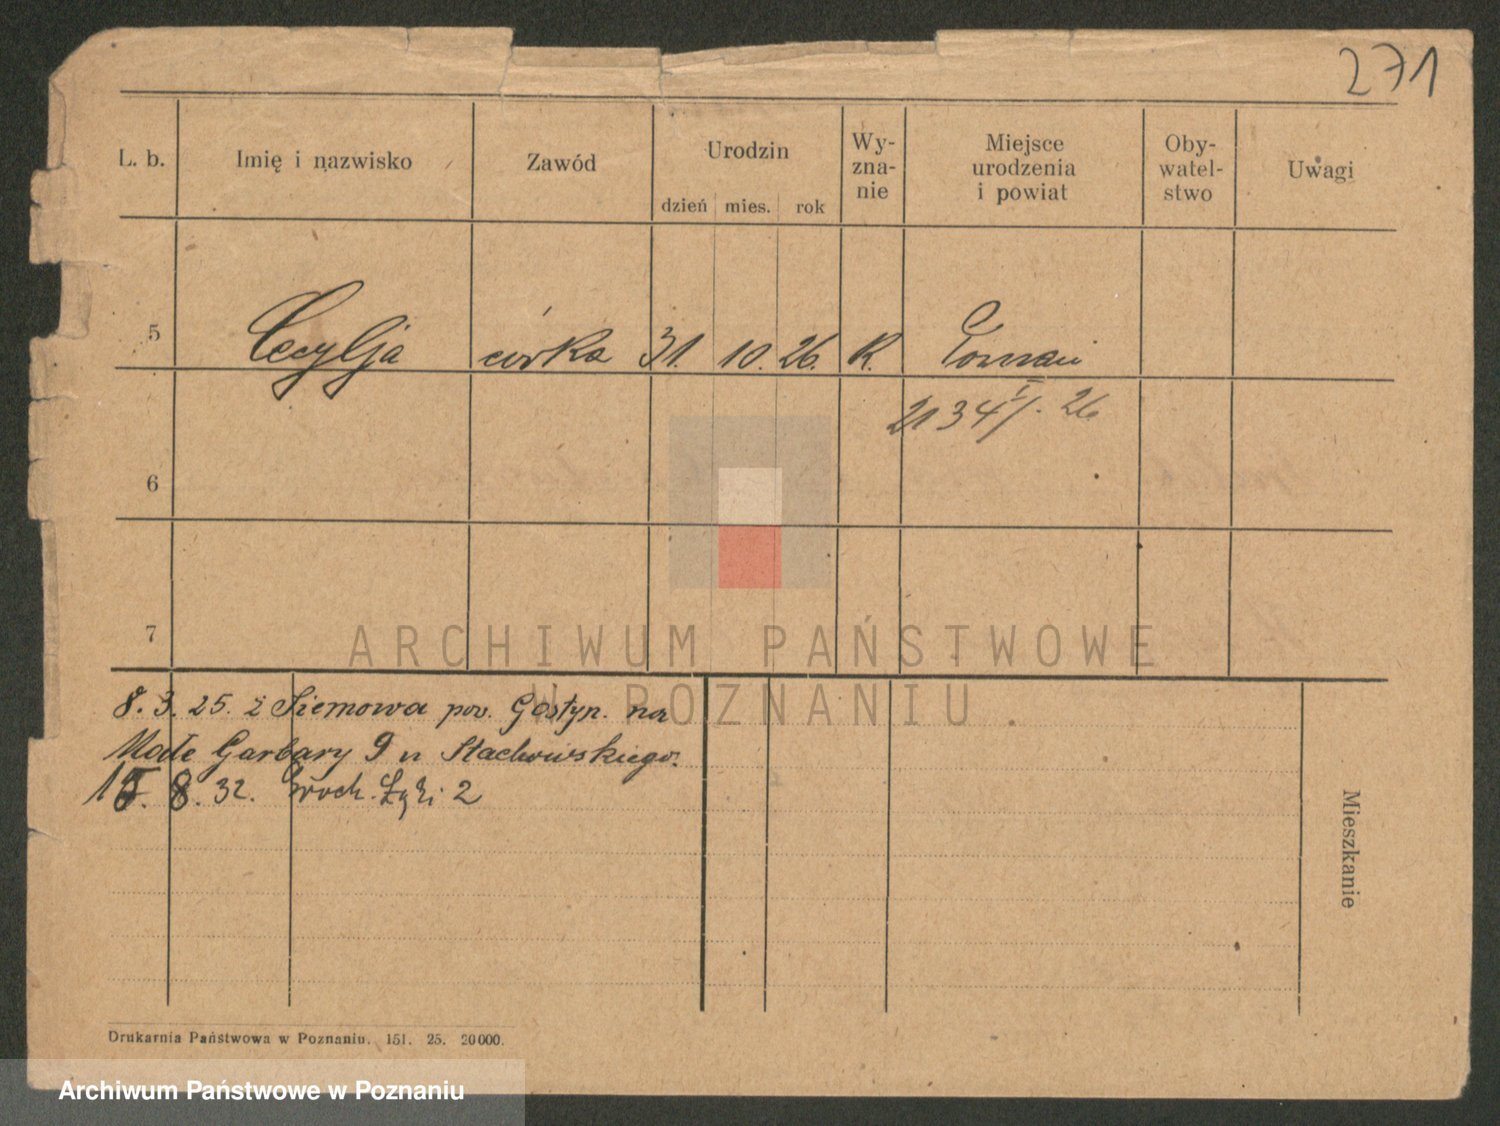 271
L. b. Imię i nazwisko Zawód Urodzin Wy-zna-nie Miejsce urodzenia i powiat Oby-watel-stwo Uwagi
dzień mies. rok
5 Cecylja córka 31. 10. 26. K. Poznań
2134/I. 26
6
7
ARCHIWUM PAŃSTWOWE
W POZNANIU.
8. 3. 25. z Siemowa pow. Gostyn. na
Małe Garbary 9 u Stachowskiego.
15. 8. 32. Droch. Łęki 2
Mieszkanie
Drukarnia Państwowa w Poznaniu. 151. 25. 20000.
Archiwum Państwowe w Poznaniu